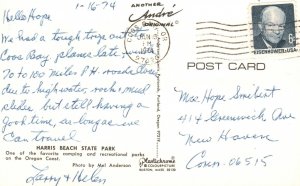 1-16-74
Hello Hope
We had a tough trip out
Coos Bay, planes late, wind
70 to 100 miles P.H. roads closed
due to high water, rocks, mud
slides but still having a
good time, as long as we
can travel
HARRIS BEACH STATE PARK
One of the favorite camping and recreational parks
on the Oregon Coast.
Photo by Mel Anderson
Larry & Helen
ANOTHER
ORIGINAL
Plastichrome
BY COLOURPICTURE
BOSTON, MASS 02130
EISENHOWER·USA
8c
POST CARD
Mrs Hope
414 Greenwich Ave
New Haven
Conn. 06515